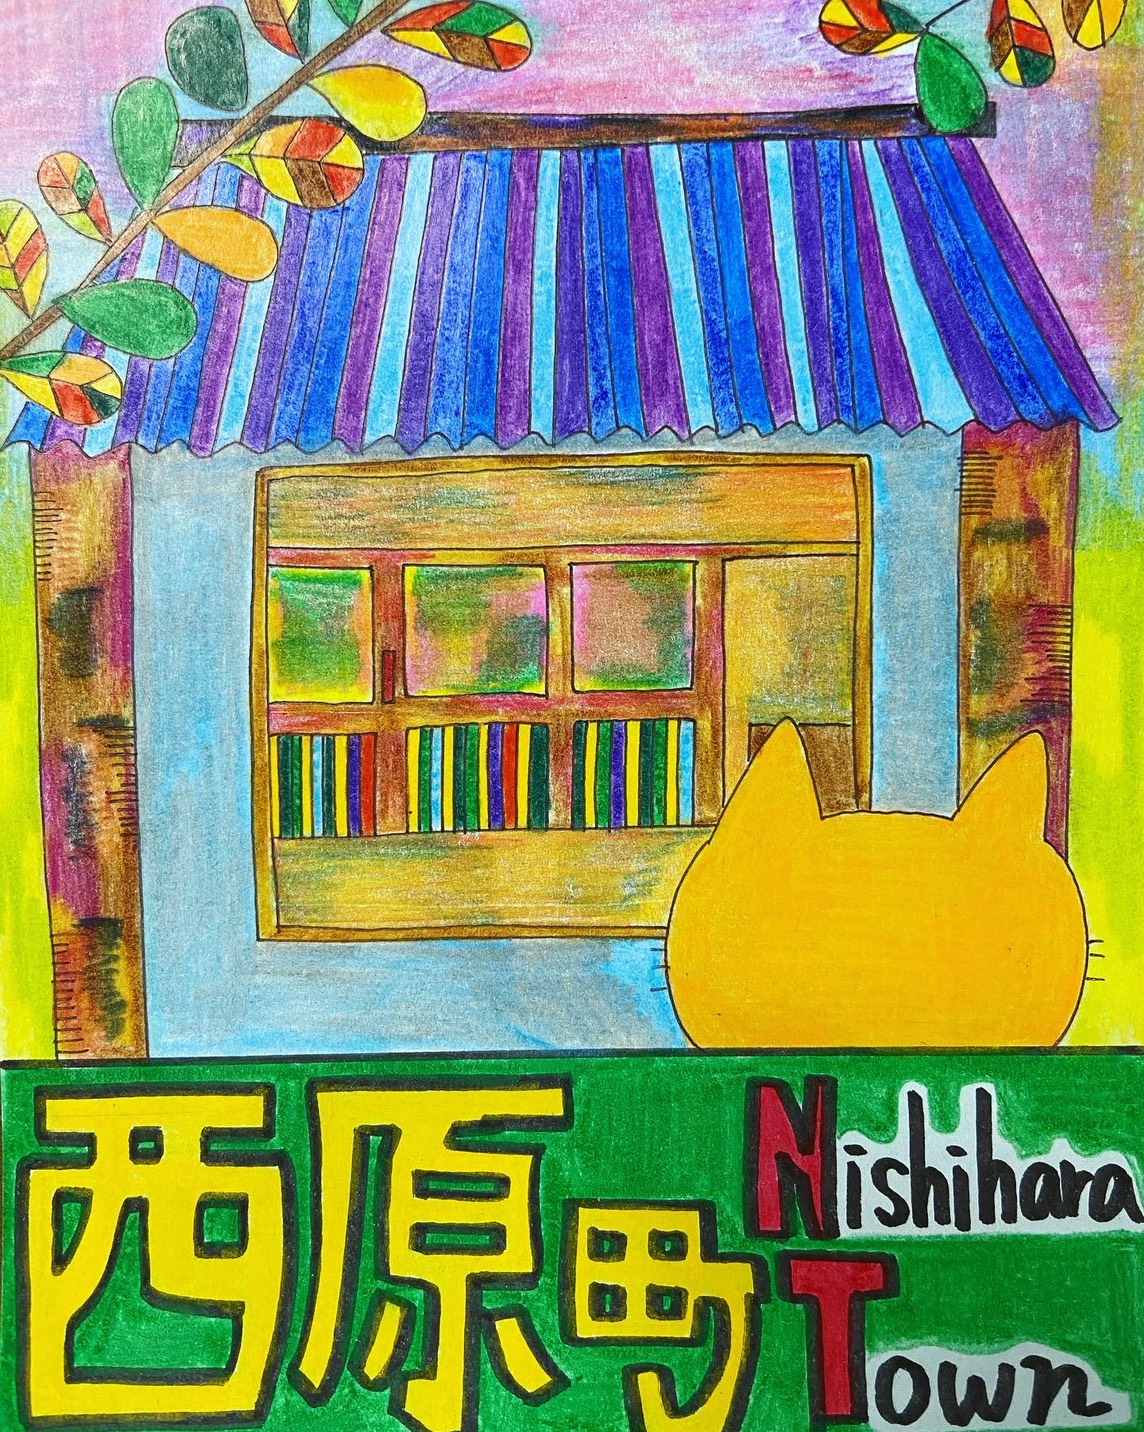 西原町
Nishihara
Town